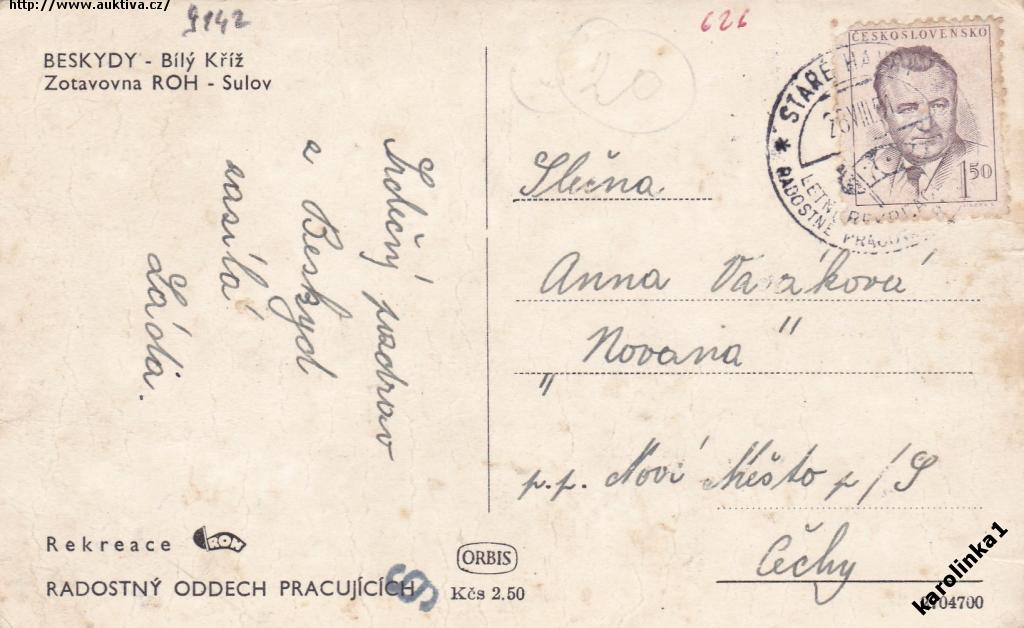 http://www.auktiva.cz/
9142
626
20
BESKYDY - Bílý Kříž
Zotavovna ROH - Sulov
ČESKOSLOVENSKO
1,50
STARÉ HA
26.VIII.
LETNÍ
RADOSTNĚ PRACU
Srdečný pozdrav
z Beskyd
zasílá
Láďa.
Slečna
Anna Vašáková
"Novana"
p.p. Nové Město p/S
Čechy
Rekreace ROH
RADOSTNÝ ODDECH PRACUJÍCÍCH
S
ORBIS
Kčs 2.50
704700
karolinka1